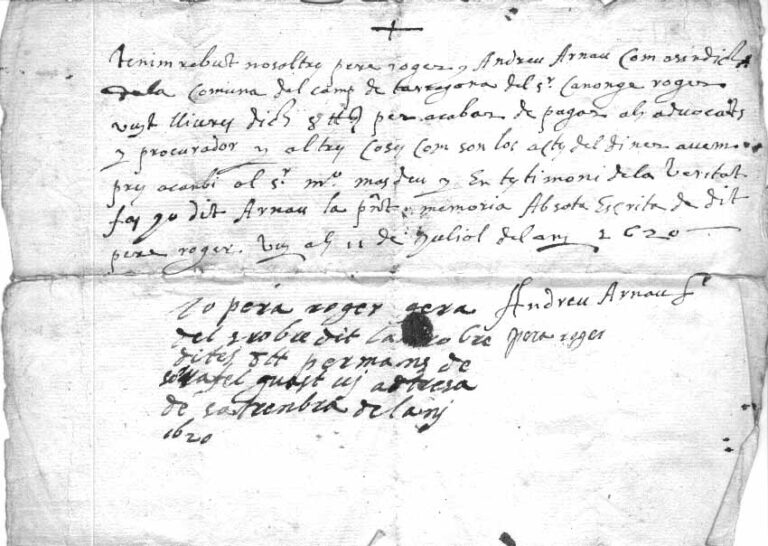 Tenim rebut nosoltry pere roger y Andreu Arnau Com a sindichs
de la Comuna del camp de tarragona del sr. Canonge roger
vuyt lliurey dich 8 ttȩ per acabar de pagar als advocats
y procurador y altry Cosy com son los acty del diner avem
pry a canbi al sr. mo. masdeu y En tytimoni de la veritat
fas yo dit Arnau la pñt memoria Absota Escrita de dit
pere roger. Vuy als 11 de Juliol del any 1620
yo pera roger Andreu Arnau
del dit pera roger
dites 8 tt per mans de
guast a tresa
de satrenbra del anj
1620